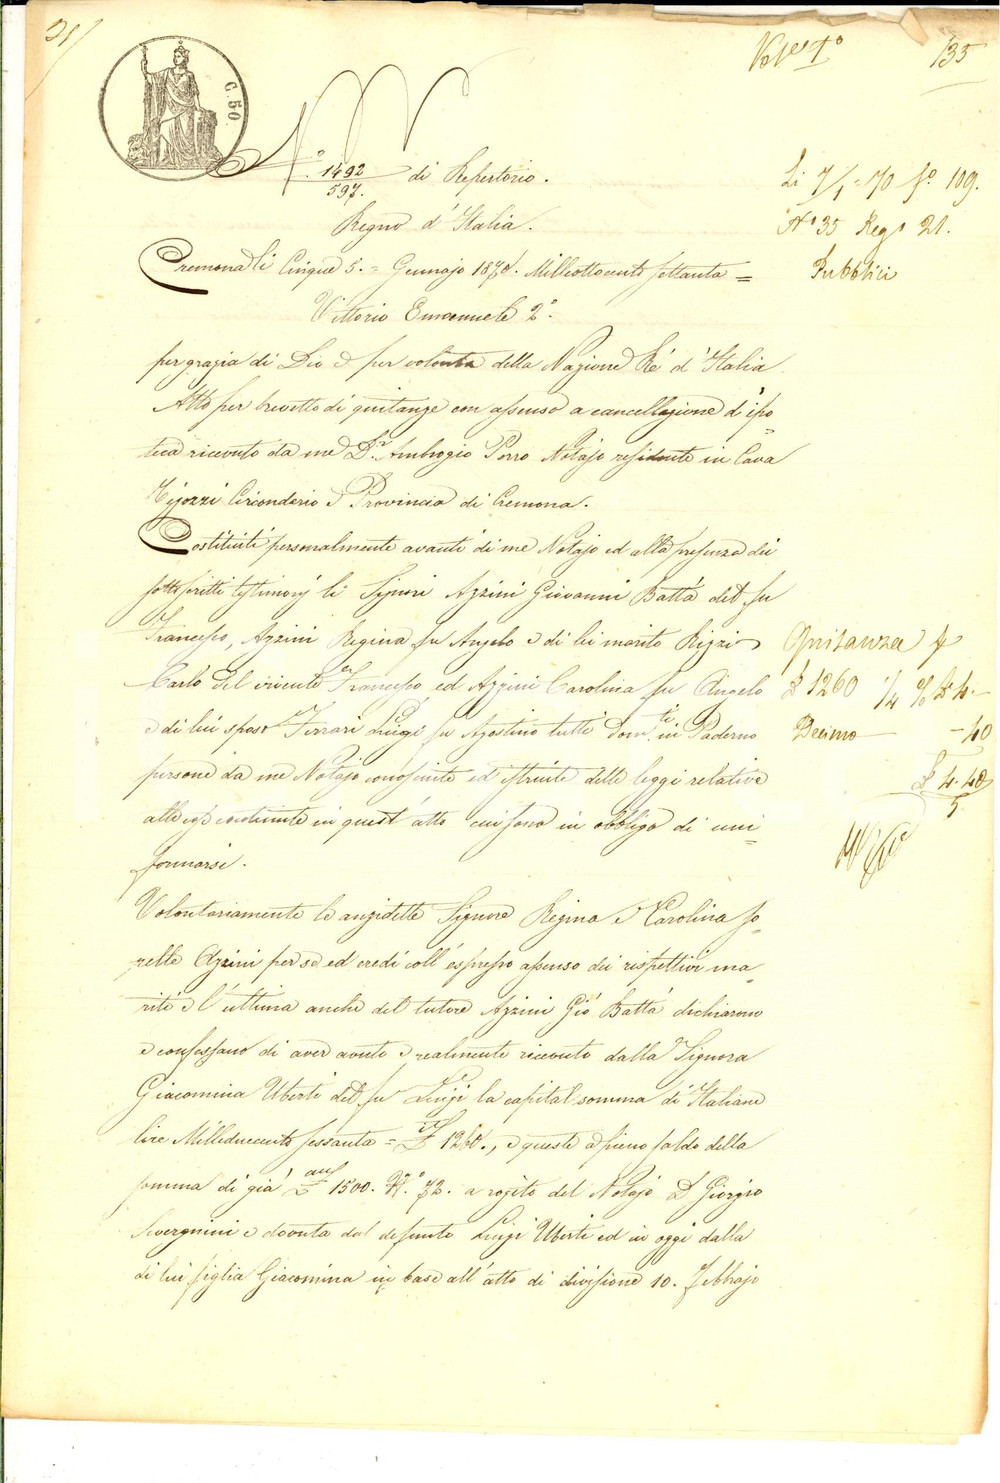 35/
Vol 1°
135
C. 50
N.° 1492/597. di Repertorio.
Li 7/1 = 70 f.° 109.
Regno d'Italia.
N° 35 Reg° 21.
Cremona li Cinque 5. = Gennajo 1870. Milleottocento settanta =
Pubblici
Vittorio Emanuele 2°.
per grazia di Dio e per volontà della Nazione Ré d'Italia
Atto per brevetto di quitanze con assenso a cancellazione d'ipo=
teca ricevuto da me Dr. Ambrogio Porro Notajo residente in Cava
Tigozzi Circondario e Provincia di Cremona.
Costituiti personalmente avanti di me Notajo ed alla presenza dei
sottoscritti testimonj li Signori Azzini Giovanni Batta del fu
Francesco, Azzini Regina fu Angelo e di lei marito Rizzi
Carlo del vivente Francesco ed Azzini Carolina fu Angelo
e di lei sposo Ferrari Luigi fu Agostino tutti Domti in Paderno
persone da me Notajo conosciute ed istruite delle leggi relative
alle cose contenute in quest'atto cui sono in obbligo di uni=
formarsi.
Quitanza
£ 1260 1/4 % £ 4.-
Decimo - 40
£ 4.40
5
Volontariamente le anzidette Signore Regina e Carolina so=
relle Azzini per sé ed eredi coll'espresso assenso dei rispettivi ma=
riti e l'ultima anche del tutore Azzini Gió Batta dichiarono
e confessano di aver avuto e realmente ricevuto dalla Signora
Giacomina Uberti del fu Luigi la capital somma di Italiane
lire Milleduecento sessanta = £ 1260., e queste a pieno saldo della
somma di già £ 1500. N.° 72. a rogito del Notajo D Giorgio
Severgnini e dovuta dal defunto Luigi Uberti ed in oggi dalla
di lui figlia Giacomina in base all'atto di divisione 10. Febbrajo